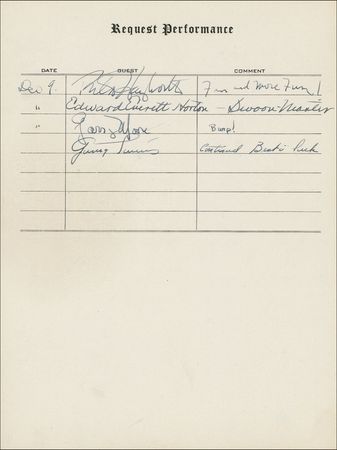 Request Performance
DATE GUEST COMMENT
Dec 9. Rita Hayworth Fun and more Fun!
" Edward Everett Horton - Swoon-Master
" Garry Moore Bump!
Ginny Simms